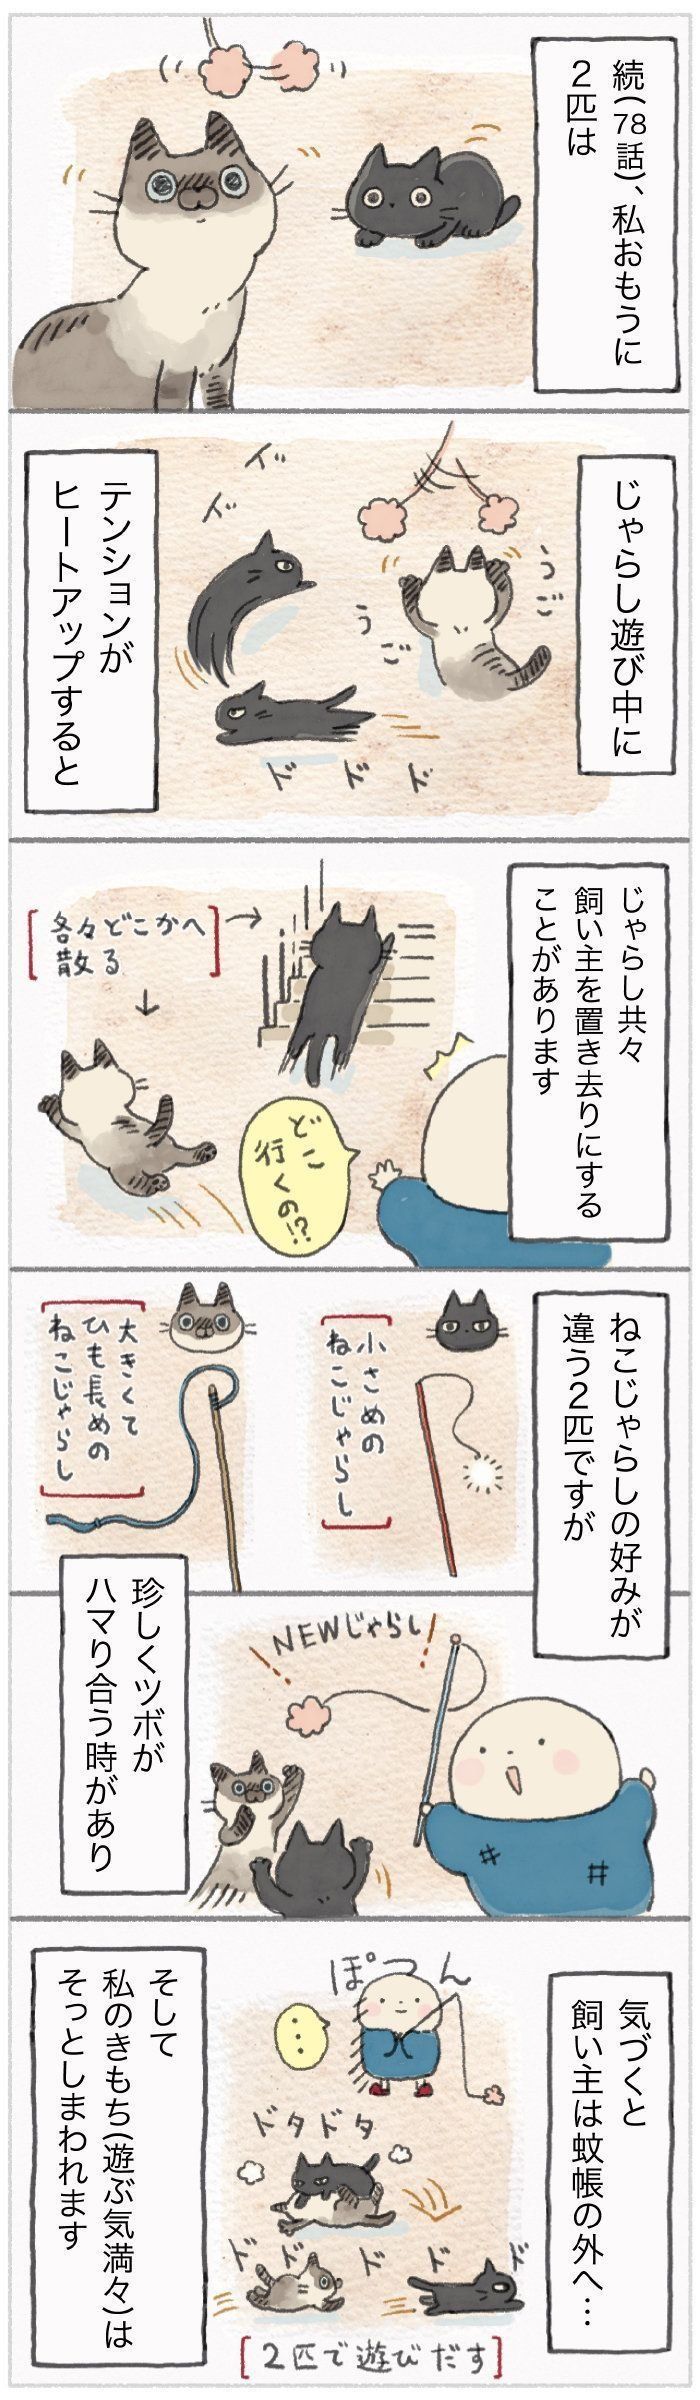 続(78話)、私おもうに
２匹は
じゃらし遊び中に
うご
うご
ド
ド
ド
ド
ド
テンションが
ヒートアップすると
じゃらし共々
飼い主を置き去りにする
ことがあります
各々どこかへ
散る
どこ
行くの!?
ねこじゃらしの好みが
違う２匹ですが
小さめの
ねこじゃらし
大きくて
ひも長めの
ねこじゃらし
NEWじゃらし
珍しくツボが
ハマり合う時があり
気づくと
飼い主は蚊帳の外へ…
ぽつん
…
ドタドタ
ド
ド
ド
ド
ド
２匹で遊びだす
そして
私のきもち(遊ぶ気満々)は
そっとしまわれます